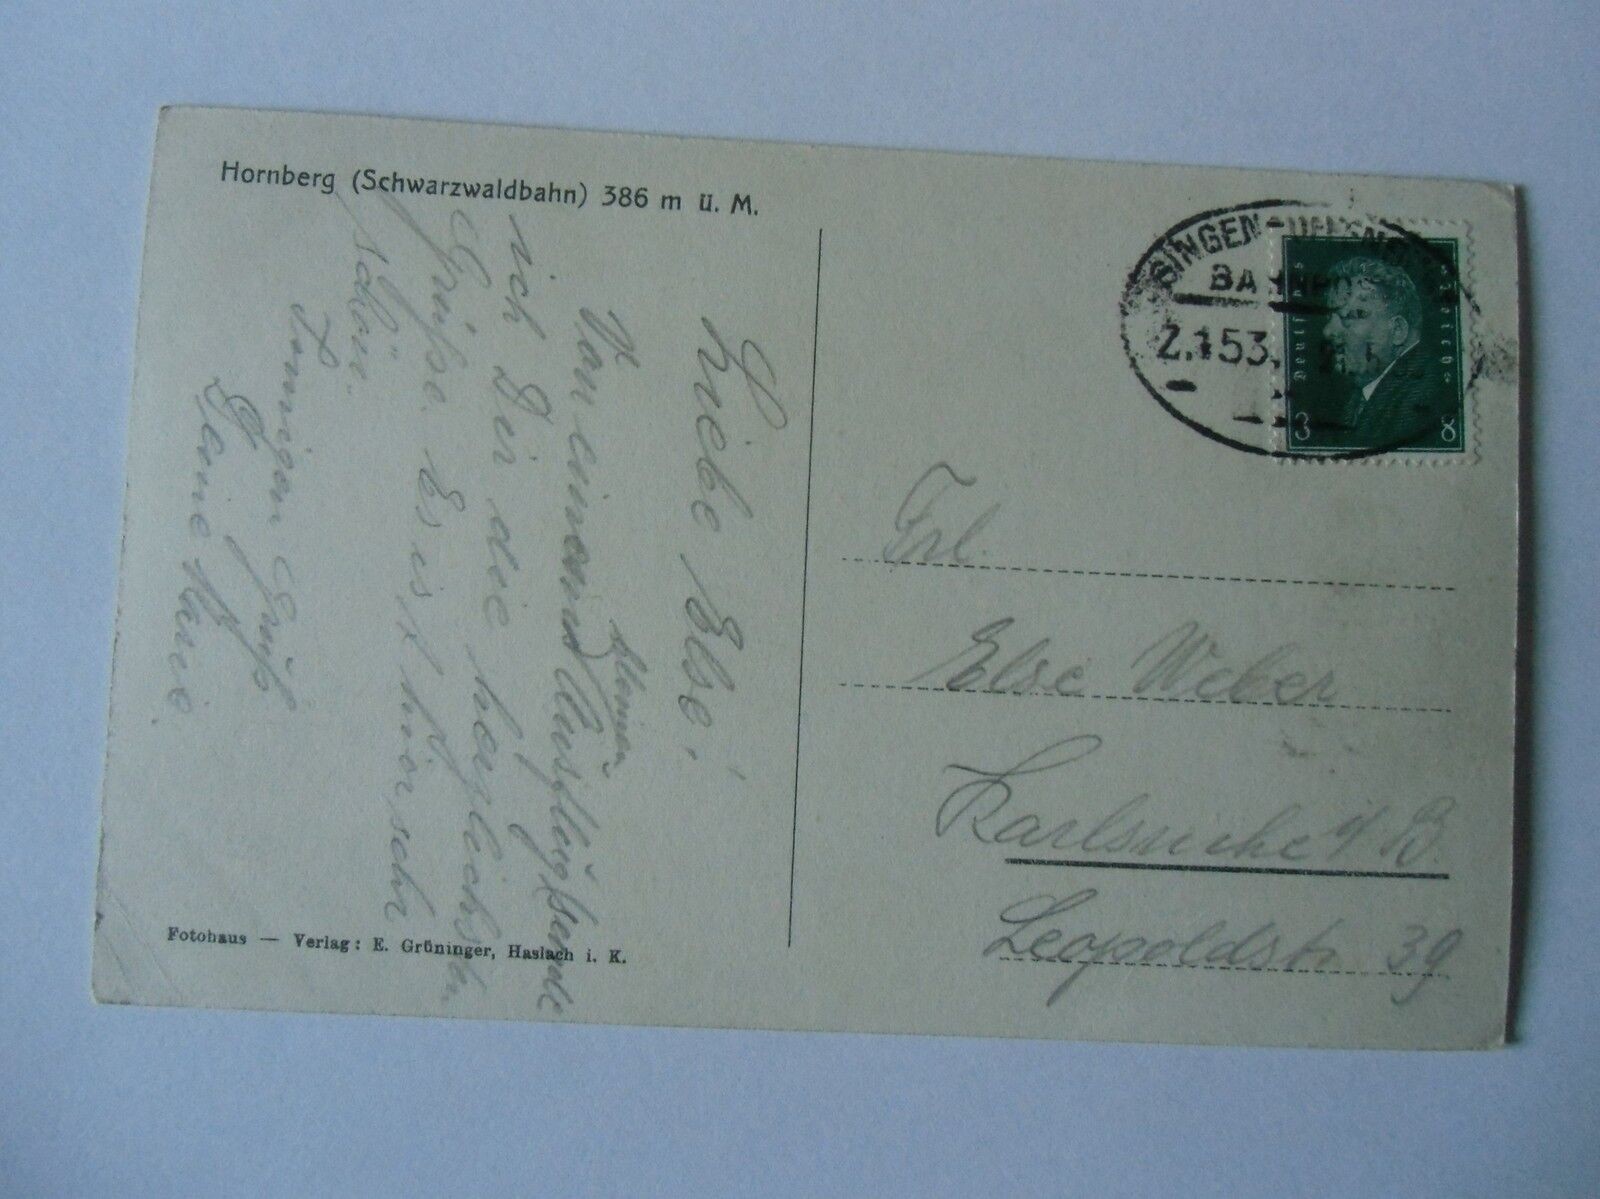 Hornberg (Schwarzwaldbahn) 386 m ü. M.
Liebe Else!
Von einem kleinen Ausflug sende
ich Dir die herzlichsten
Grüße. Es ist hier sehr
schön.
Innigen Gruß
Deine Marie.
Fotohaus — Verlag: E. Grüninger, Haslach i. K.
SINGEN-
BAHNPOST
Z.153.
Deutsches Reich
3 8
Frl.
Else Weber
Karlsruhe i/B.
Leopoldstr 39